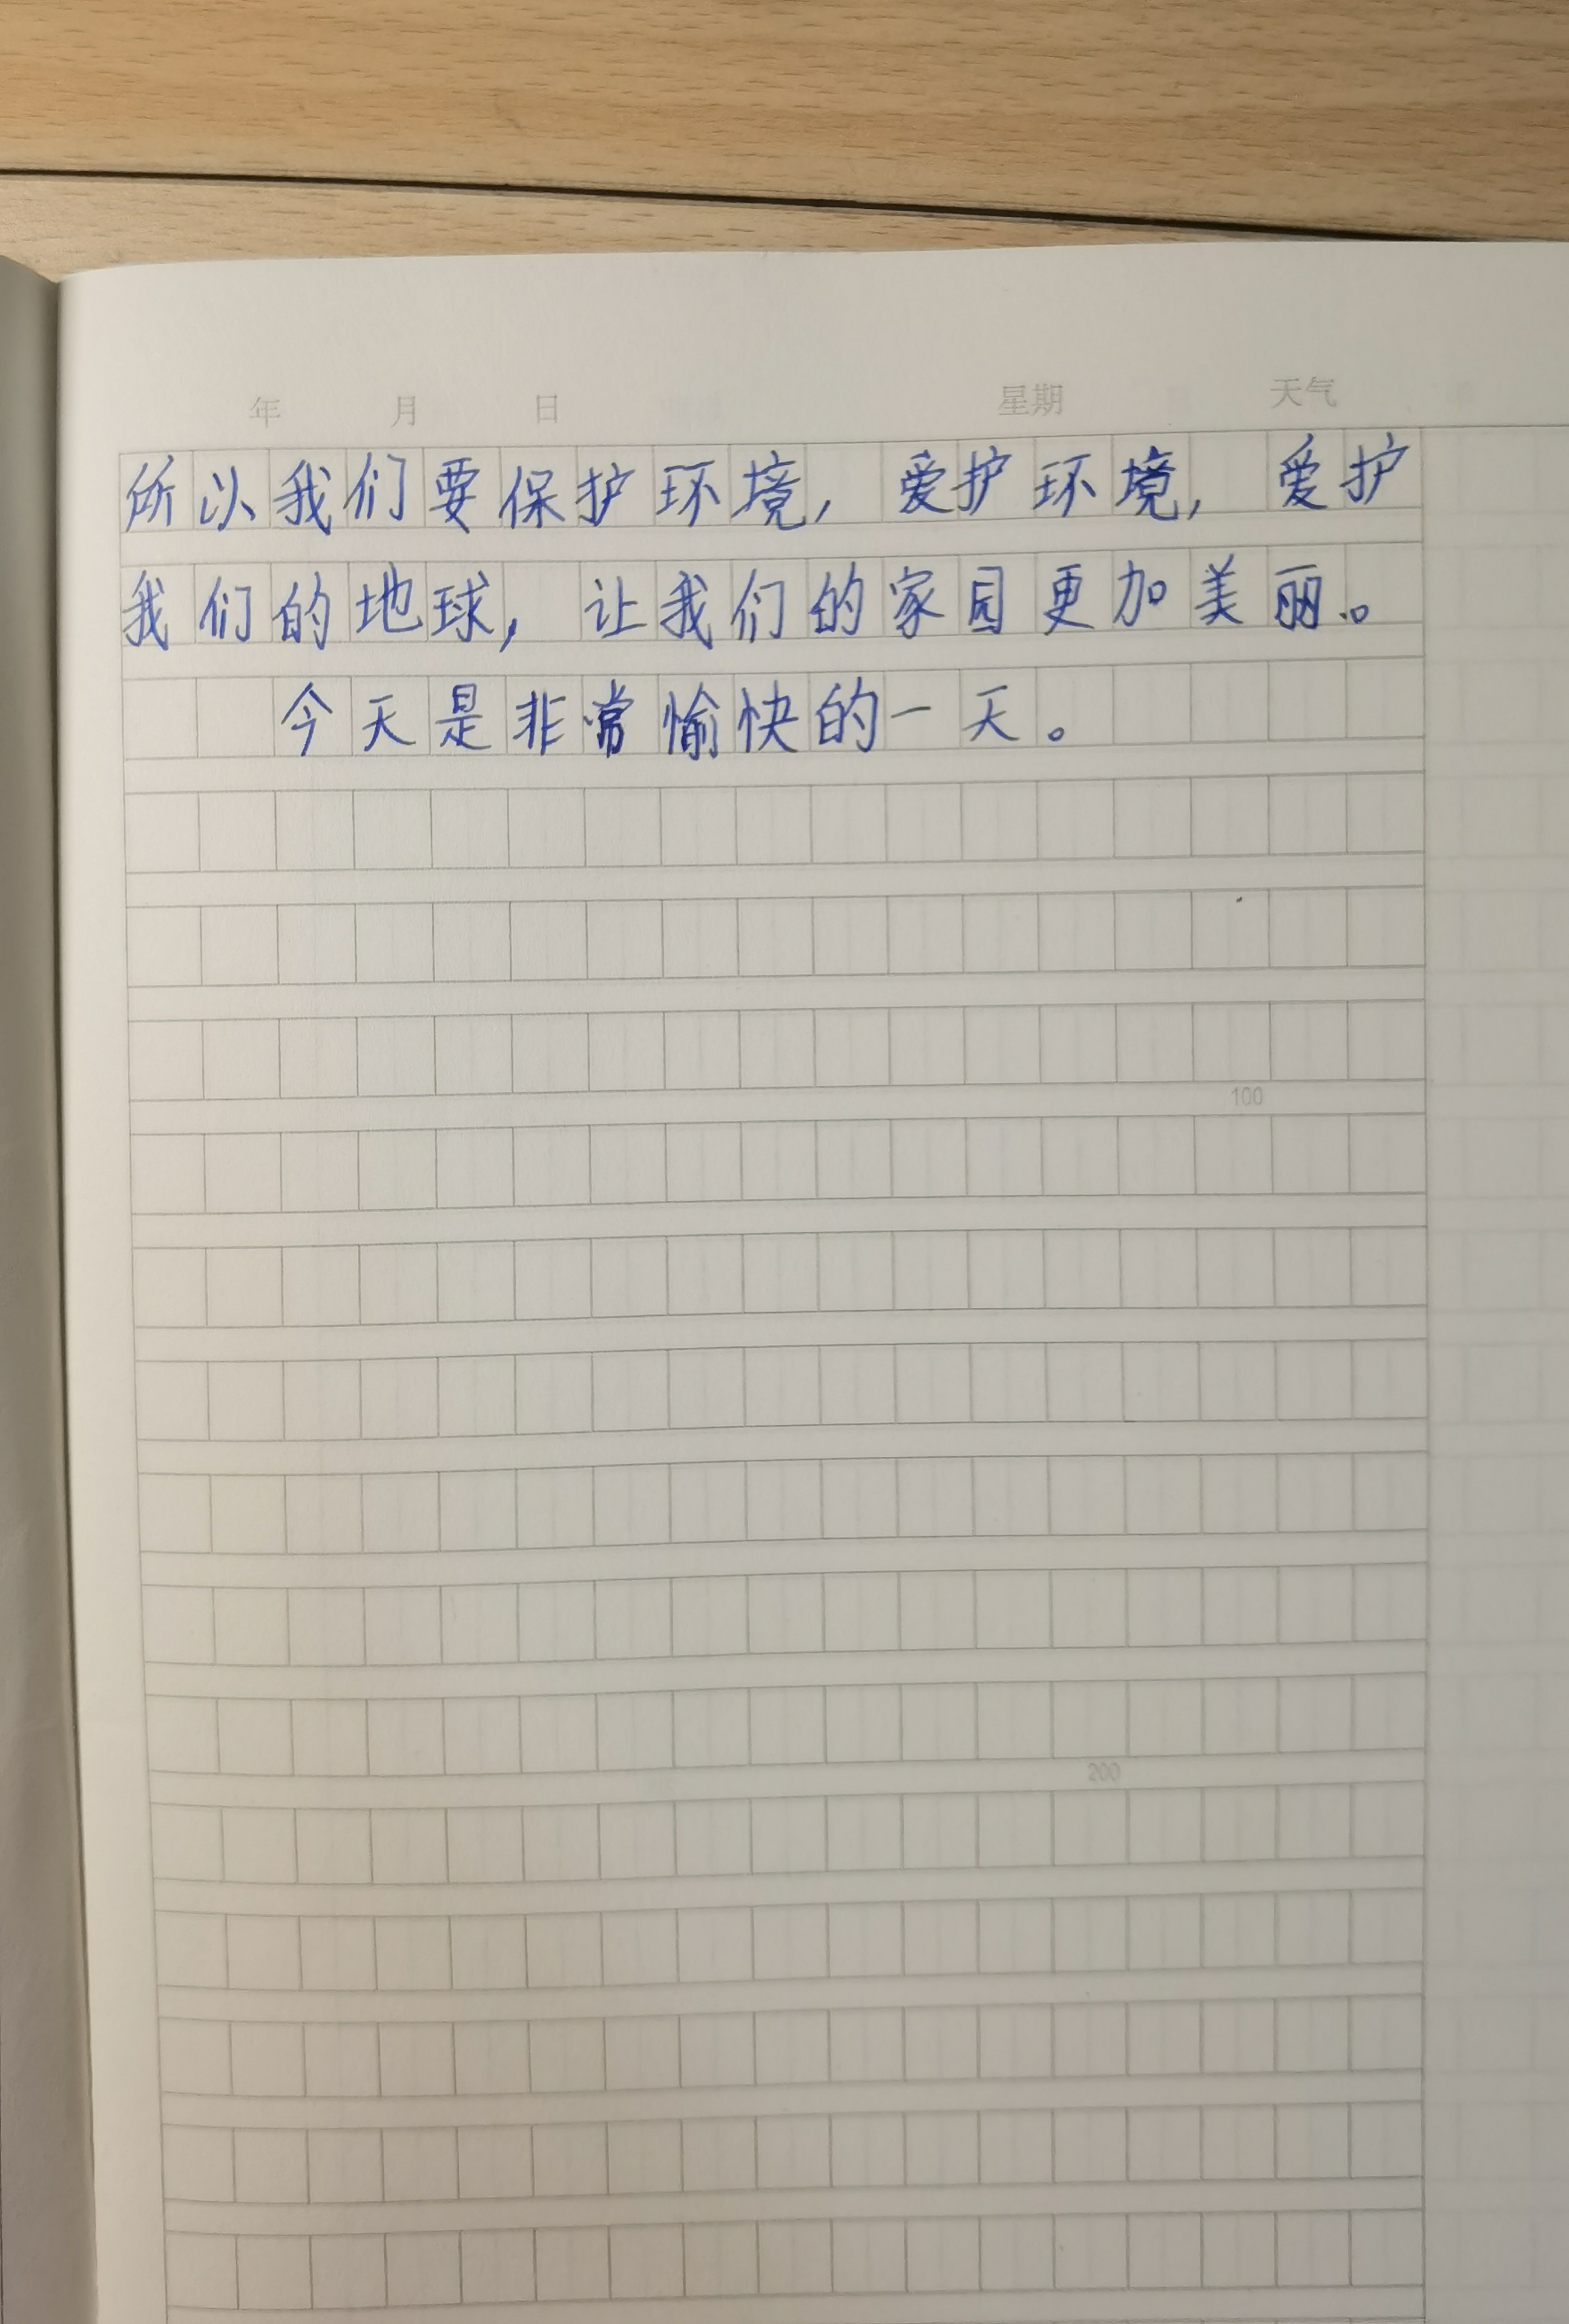 年 月 日 星期 天气
所以我们要保护环境，爱护环境，爱护
我们的地球，让我们的家园更加美丽。
今天是非常愉快的一天。
100
200